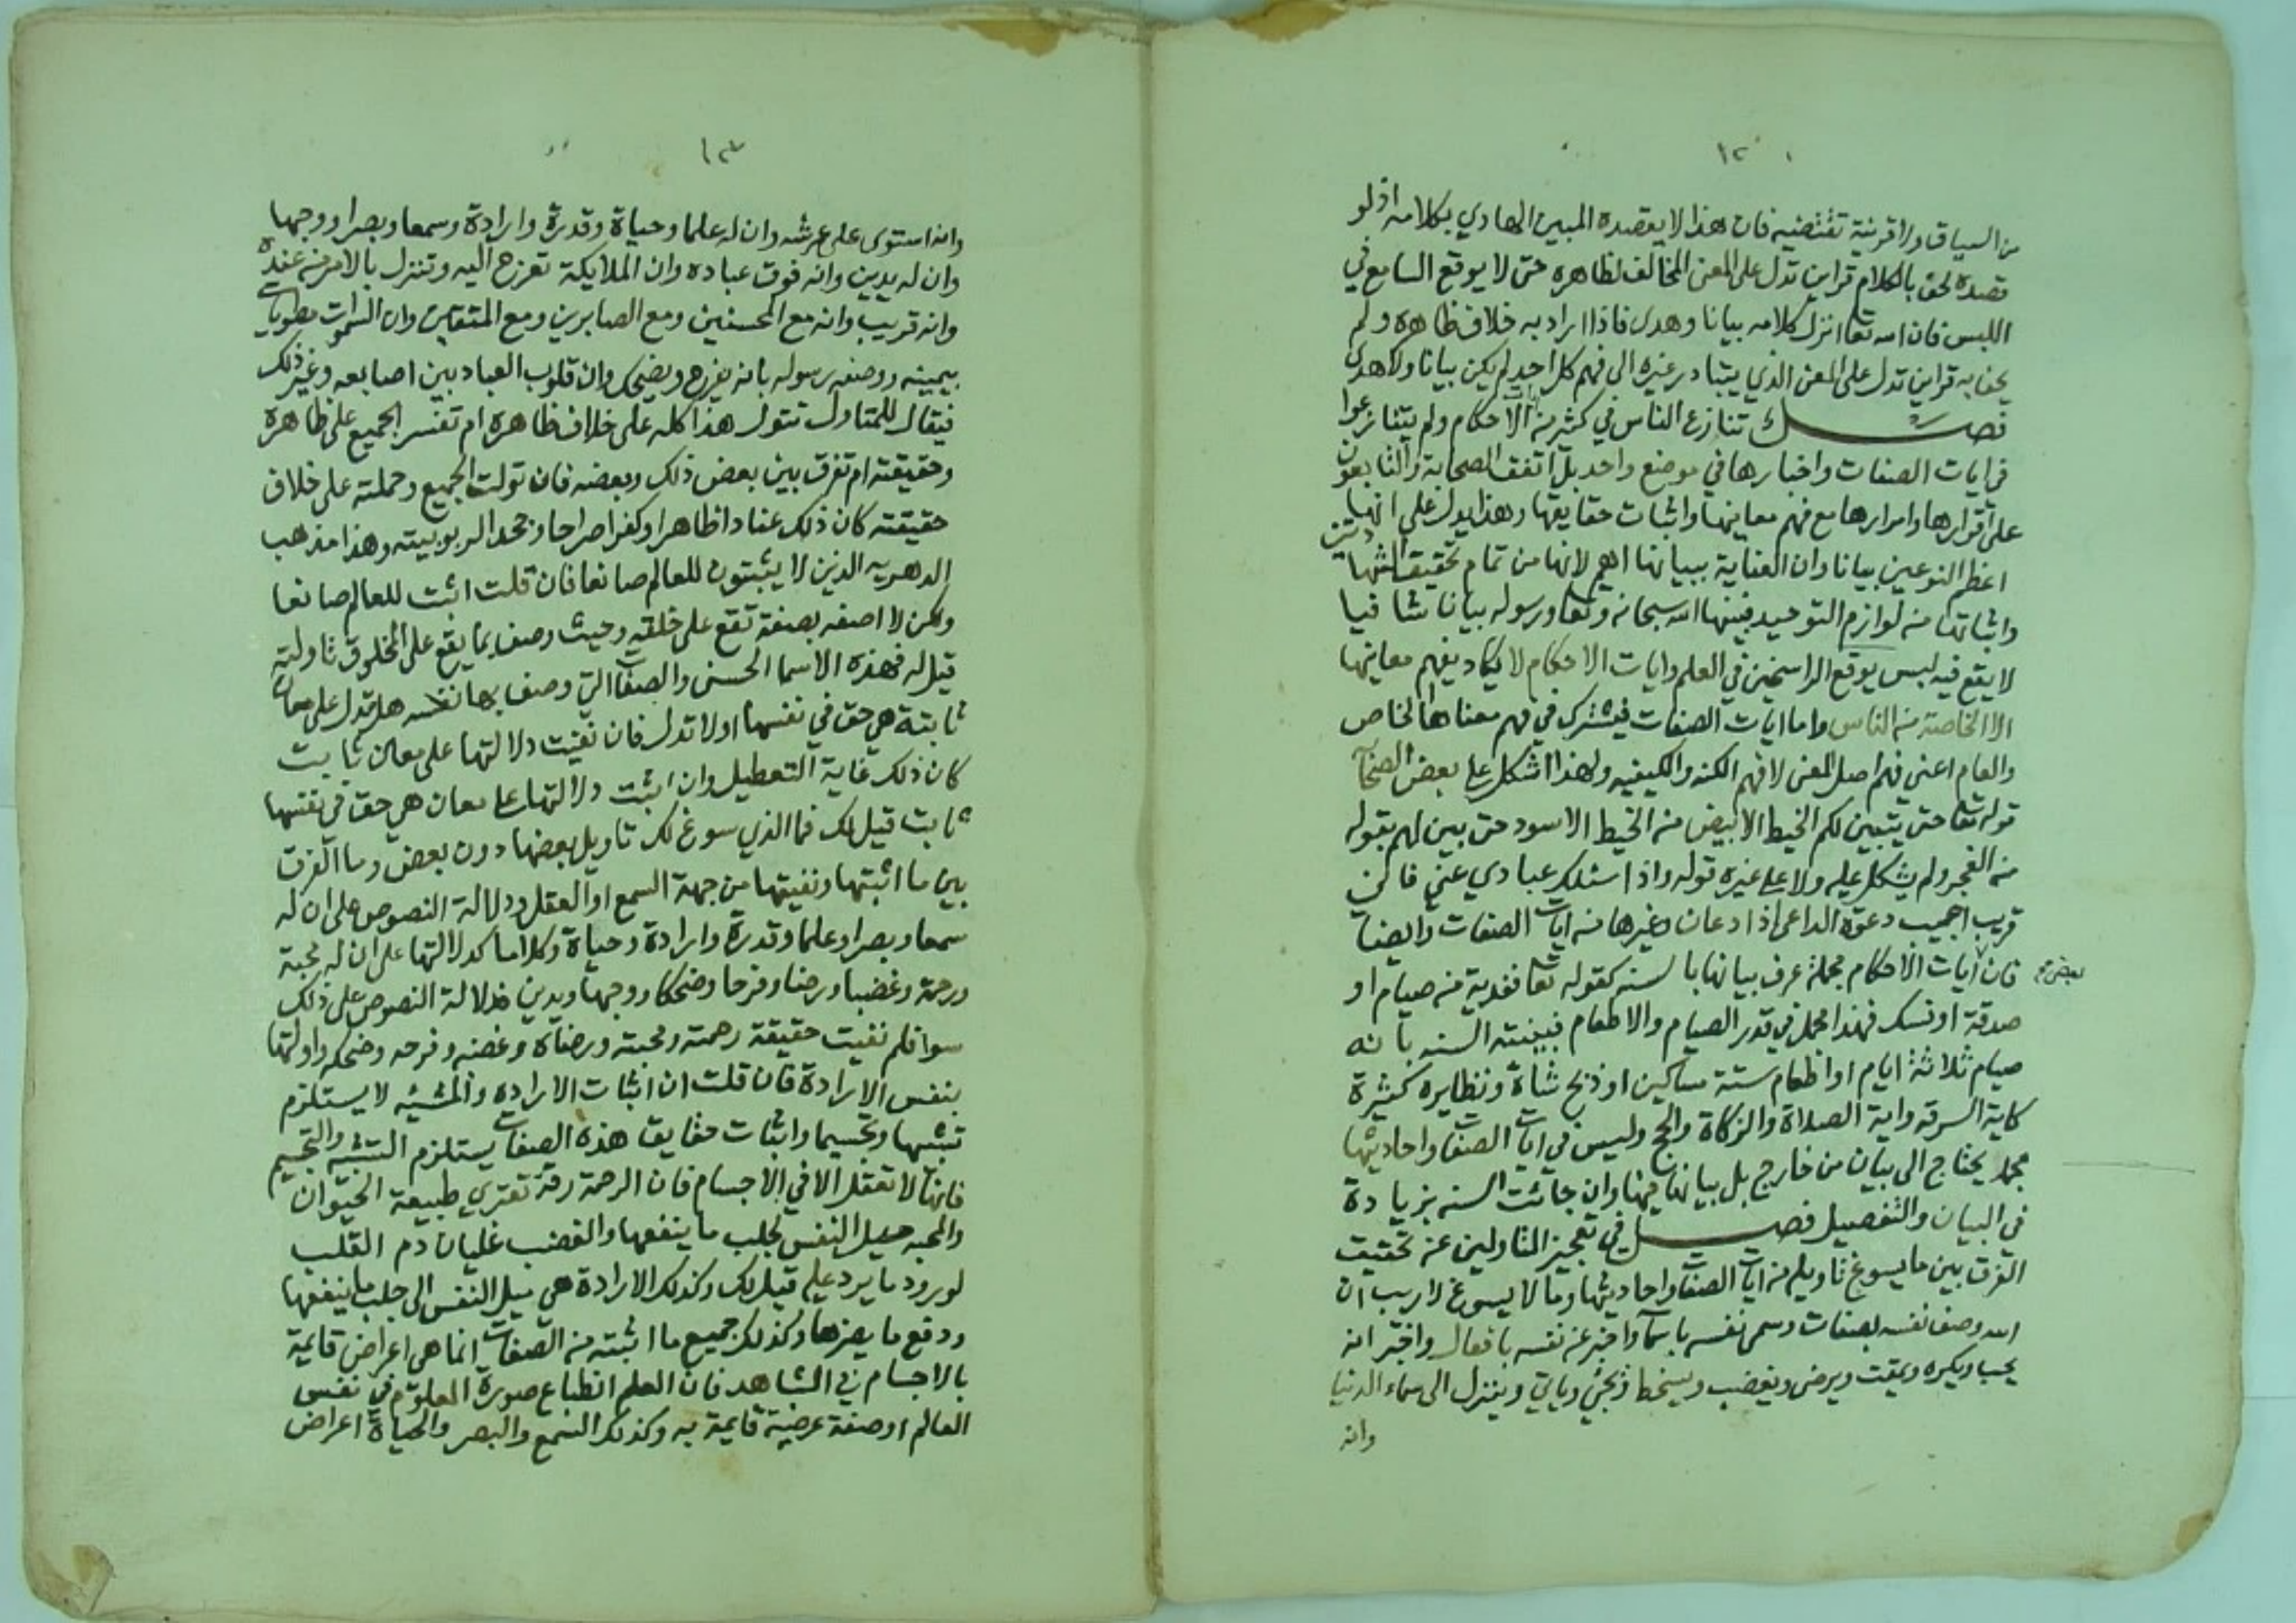 ١٢
من السياق ولا قرينة تقتضيه فان هذا لا يقصده المبين الهادي بكلامه اذ لو
قصده لحف بالكلام قراين تدل على المعنى المخالف لظاهره حتى لا يوقع السامع في
اللبس فان الله تعا انزل كلامه بيانا وهدى فاذا اراد به خلاف ظاهره ولم
يحف به قراين تدل على المعنى الذي يتبادر غيره الى فهم كل احد لم يكن بيانا ولا هدى
فصل تنازع الناس في كثير من الاحكام ولم يتنازعوا
في ايات الصفات واخبارها في موضع واحد بل اتفق الصحابة والتابعون
على اقرارها وامرارها مع فهم معانيها واثبات حقايقها وهذا يدل على انها
اعظم النوعين بيانا وان العناية ببيانها اهم لانها من تمام تحقيق الشهادتين
واثباتها من لوازم التوحيد فبينها الله سبحانه وتعا ورسوله بيانا شافيا
لا يقع فيه لبس يوقع الراسخين في العلم وايات الاحكام لا يكاد يفهم معانيها
الا الخاصة من الناس واما ايات الصفات فيشترك في فهم معناها الخاص
والعام اعني فهم اصل المعنى لا فهم الكنه والكيفيه ولهذا اشكل على بعض الصحابة
قوله تعا حتى يتبين لكم الخيط الابيض من الخيط الاسود حتى بين لهم بقوله
من الفجر ولم يشكل عليه ولا على غيره قوله واذا سئلك عبادي عني فاني
قريب اجيب دعوة الداعي اذا دعان وغيرها من ايات الصفات وايضا
فان ايات الاحكام مجملة عرف بيانها بالسنه كقوله تعا ففدية من صيام او
بعض
صدقة او نسك فهذا مجمل في قدر الصيام والاطعام فبينته السنه بانه
صيام ثلاثة ايام او اطعام ستة مساكين او ذبح شاة ونظايره كثيرة
كاية السرقه واية الصلاة والزكاة والحج وليس في ايات الصفات واحاديثها
مجمل يحتاج الى بيان من خارج بل بيانها فيها وان جائت السنه بزيادة
في البيان والتفصيل فصل في تعجيز المتاولين عن تحقيق
الفرق بين ما يسوغ تاويله من ايات الصفات واحاديثها وما لا يسوغ لا ريب ان
الله وصف نفسه بصفات وسمى نفسه باسما واخبر عن نفسه بافعال واخبر انه
يحب ويكره ويمقت ويرضى ويغضب ويسخط ويجئ وياتي وينزل الى سماء الدنيا
وانه
١٣
وانه استوى على عرشه وان له علما وحياة وقدرة وارادة وسمعا وبصرا ووجها
وان له يدين وانه فوق عباده وان الملايكة تعرج اليه وتنزل بالامر من عنده
وانه قريب وانه مع المحسنين ومع الصابرين ومع المتقين وان السموات مطويات
بيمينه ووصفه رسوله بانه يفرح ويضحك وان قلوب العباد بين اصابعه وغير ذلك
فيقال للمتاول تتول هذا كله على خلاف ظاهره ام تفسر الجميع على ظاهره
وحقيقته ام تفرق بين بعض ذلك وبعضه فان تولت الجميع وحملته على خلاف
حقيقته كان ذلك عنادا ظاهرا وكفرا صراحا وجحدا لربوبيته وهذا مذهب
الدهريه الذين لا يثبتون للعالم صانعا فان قلت اثبت للعالم صانعا
ولكن لا اصفه بصفة تقع على خلقه وحيث وصف بما يقع على المخلوق تاولته
قيل له فهذه الاسما الحسنى والصفات التي وصف بها نفسه هل تدل على معان
ثابتة هي حق في نفسها او لا تدل فان نفيت دلالتها على معان ثابت
كان ذلك غاية التعطيل وان اثبت دلالتها على معان هي حق في نفسها
ثابت قيل لك فما الذي سوغ لك تاويل بعضها دون بعض وما الفرق
بين ما اثبتها ونفيتها من جهة السمع او العقل ودلالة النصوص على ان له
سمعا وبصرا وعلما وقدرة وارادة وحياة وكلاما كدلالتها على ان له محبة
ورحمة وغضبا ورضا وفرحا وضحكا ووجها ويدين فدلالة النصوص على ذلك
سوا فلم نفيت حقيقة رحمته ومحبته ورضاه وغضبه وفرحه وضحكه واولتها
بنفس الارادة فان قلت ان اثبات الاراده والمشيه لا يستلزم
تشبيها وتجسيما واثبات حقايق هذه الصفات يستلزم التشبيه والتجسيم
فانها لا تعقل الا في الاجسام فان الرحمة رقة تعتري طبيعة الحيوان
والمحبه ميل النفس لجلب ما ينفعها والغضب غليان دم القلب
لورود ما يرد عليه قيل لك وكذلك الارادة هي ميل النفس الى جلب ما ينفعها
ودفع ما يضرها وكذلك جميع ما اثبته من الصفات انما هي اعراض قايمة
بالاجسام في الشاهد فان العلم انطباع صورة المعلوم في نفس
العالم او صفة عرضية قايمة به وكذلك السمع والبصر والحياة اعراض